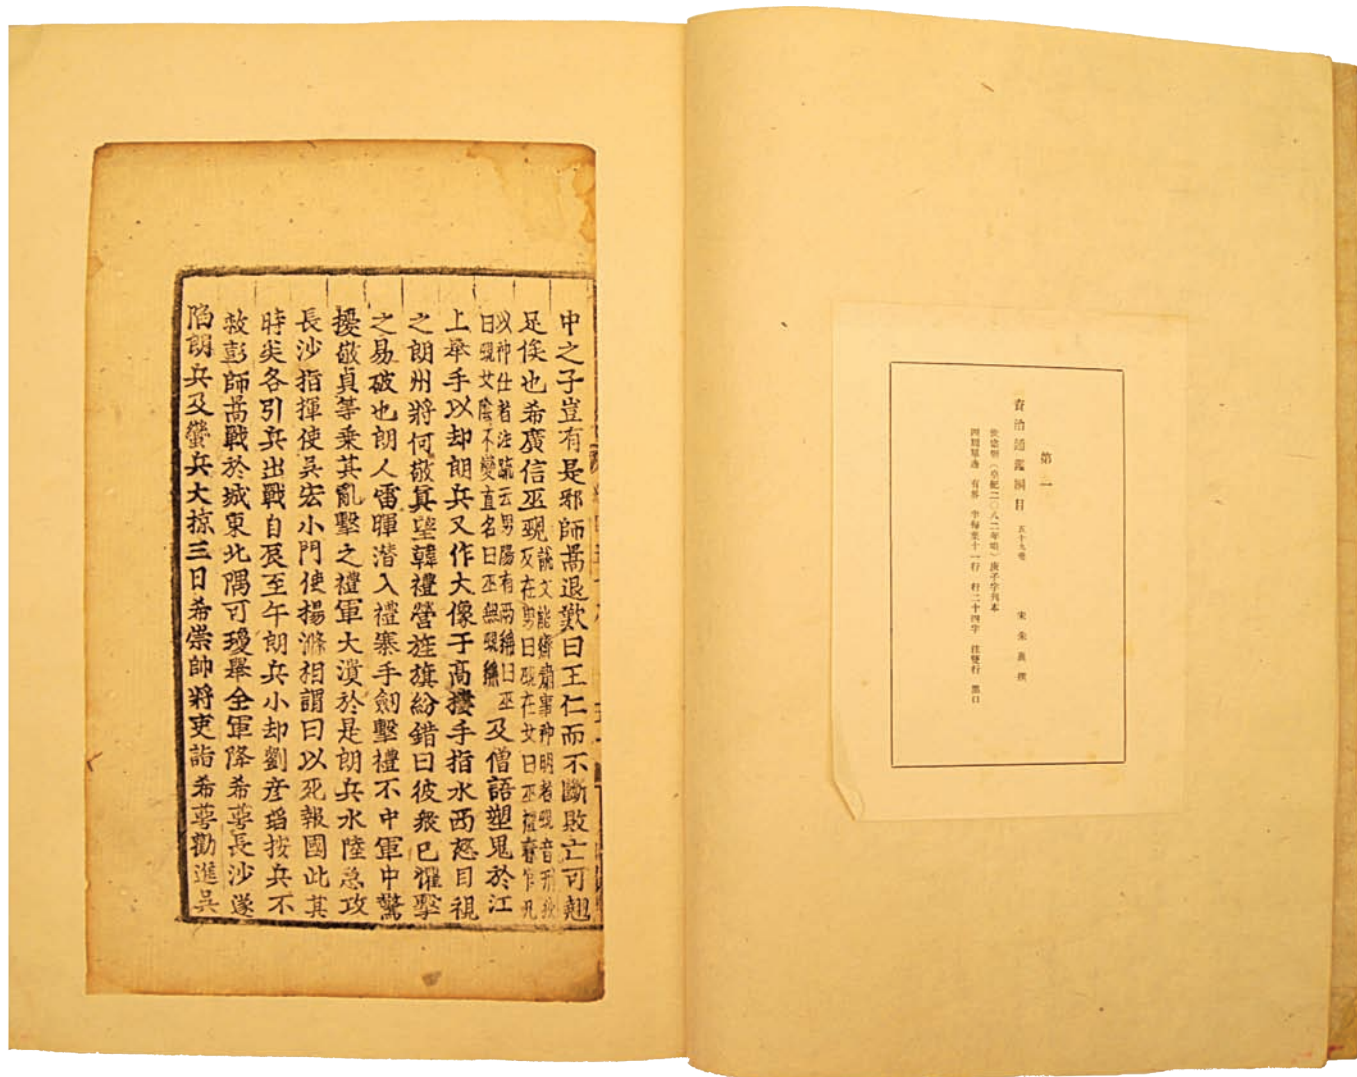 第一
資治通鑑綱目 五十九卷 宋 朱熹 撰
世宗朝（皇紀二〇八二年頃）庚子字刊本
四周單邊 有界 半每葉十一行 行二十四字 註雙行 黑口
中之子豈有是邪師暠退歎曰王仁而不斷敗亡可翹
足俟也希廣信巫覡
說文能齋肅事神明者覡音刑狄
反在男曰覡在女曰巫禮春官凡
以神仕者注疏云男陽有兩稱曰巫
曰覡女陰不變直名曰巫無覡稱
及僧語塑鬼於江
上舉手以却朗兵又作大像于高樓手指水西怒目視
之朗州將何敬真望韓禮營旌旗紛錯曰彼衆已懼擊
之易破也朗人雷暉潜入禮寨手劒擊禮不中軍中驚
擾敬貞等乗其亂擊之禮軍大潰於是朗兵水陸急攻
長沙指揮使吳宏小門使楊滌相謂曰以死報國此其
時矣各引兵出戰自辰至午朗兵小却劉彦瑫按兵不
救彭師暠戰於城東北隅可瓊舉全軍降希蕚長沙遂
陷朗兵及蠻兵大掠三日希崇帥將吏詣希蕚勸進吳